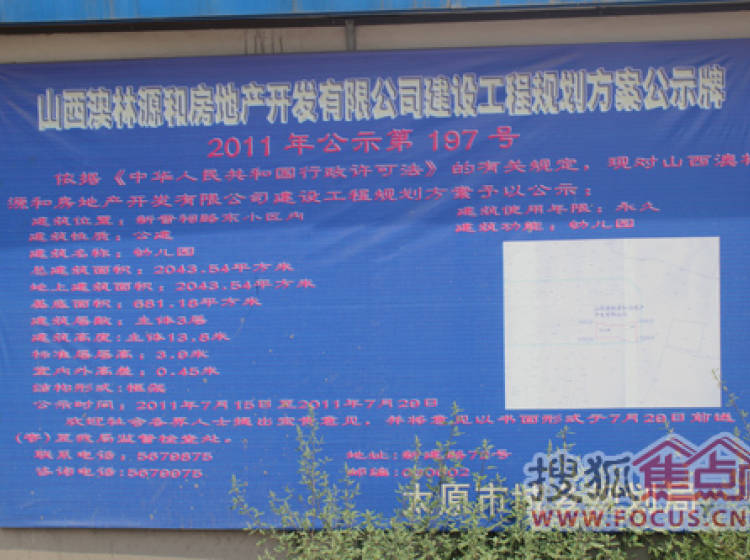 山西澳林源和房地产开发有限公司建设工程规划方案公示牌
2011年公示第197号
依据《中华人民共和国行政许可法》的有关规定，现对山西澳林
源和房地产开发有限公司建设工程规划方案予以公示：
建筑位置：新晋祠路东小区内
建筑使用年限：永久
建筑性质：公建
建筑功能：幼儿园
建筑名称：幼儿园
总建筑面积：2043.54平方米
地上建筑面积：2043.54平方米
基底面积：681.18平方米
建筑层数：主体3层
建筑高度：主体13.8米
标准层层高：3.9米
室内外高差：0.45米
结构形式：框架
公示时间：2011年7月15日至2011年7月29日
欢迎社会各界人士提出宝贵意见，并将意见以书面形式于7月29日前送
(寄)至我局监督检查处。
联系电话：5679875
地址：新建路78号
咨询电话：5679975
邮编：030002
太原市
搜狐焦点
WWW.FOCUS.CN